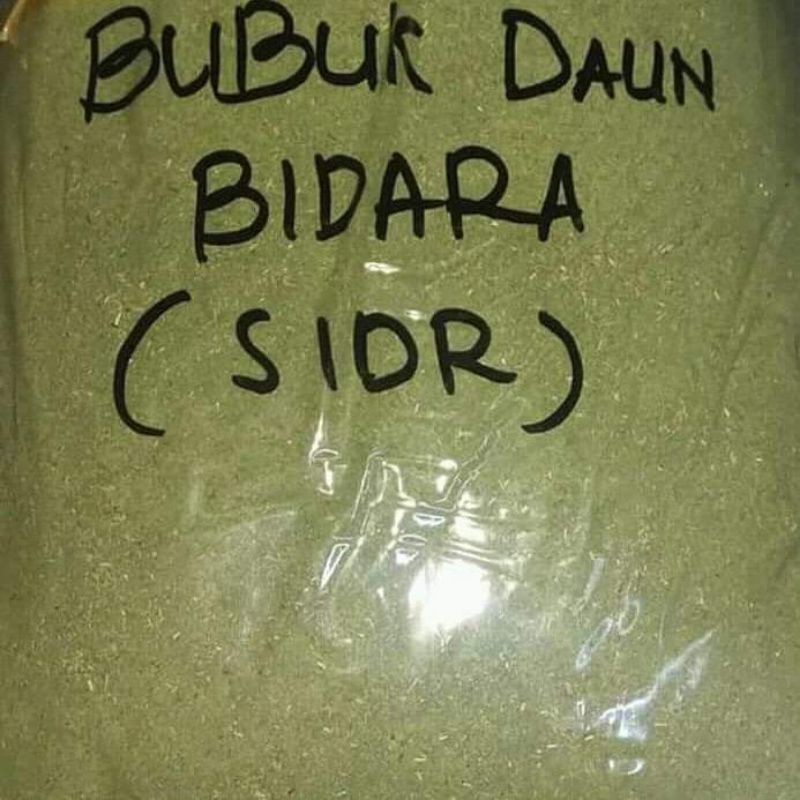 BUBUK DAUN
BIDARA
(SIDR)